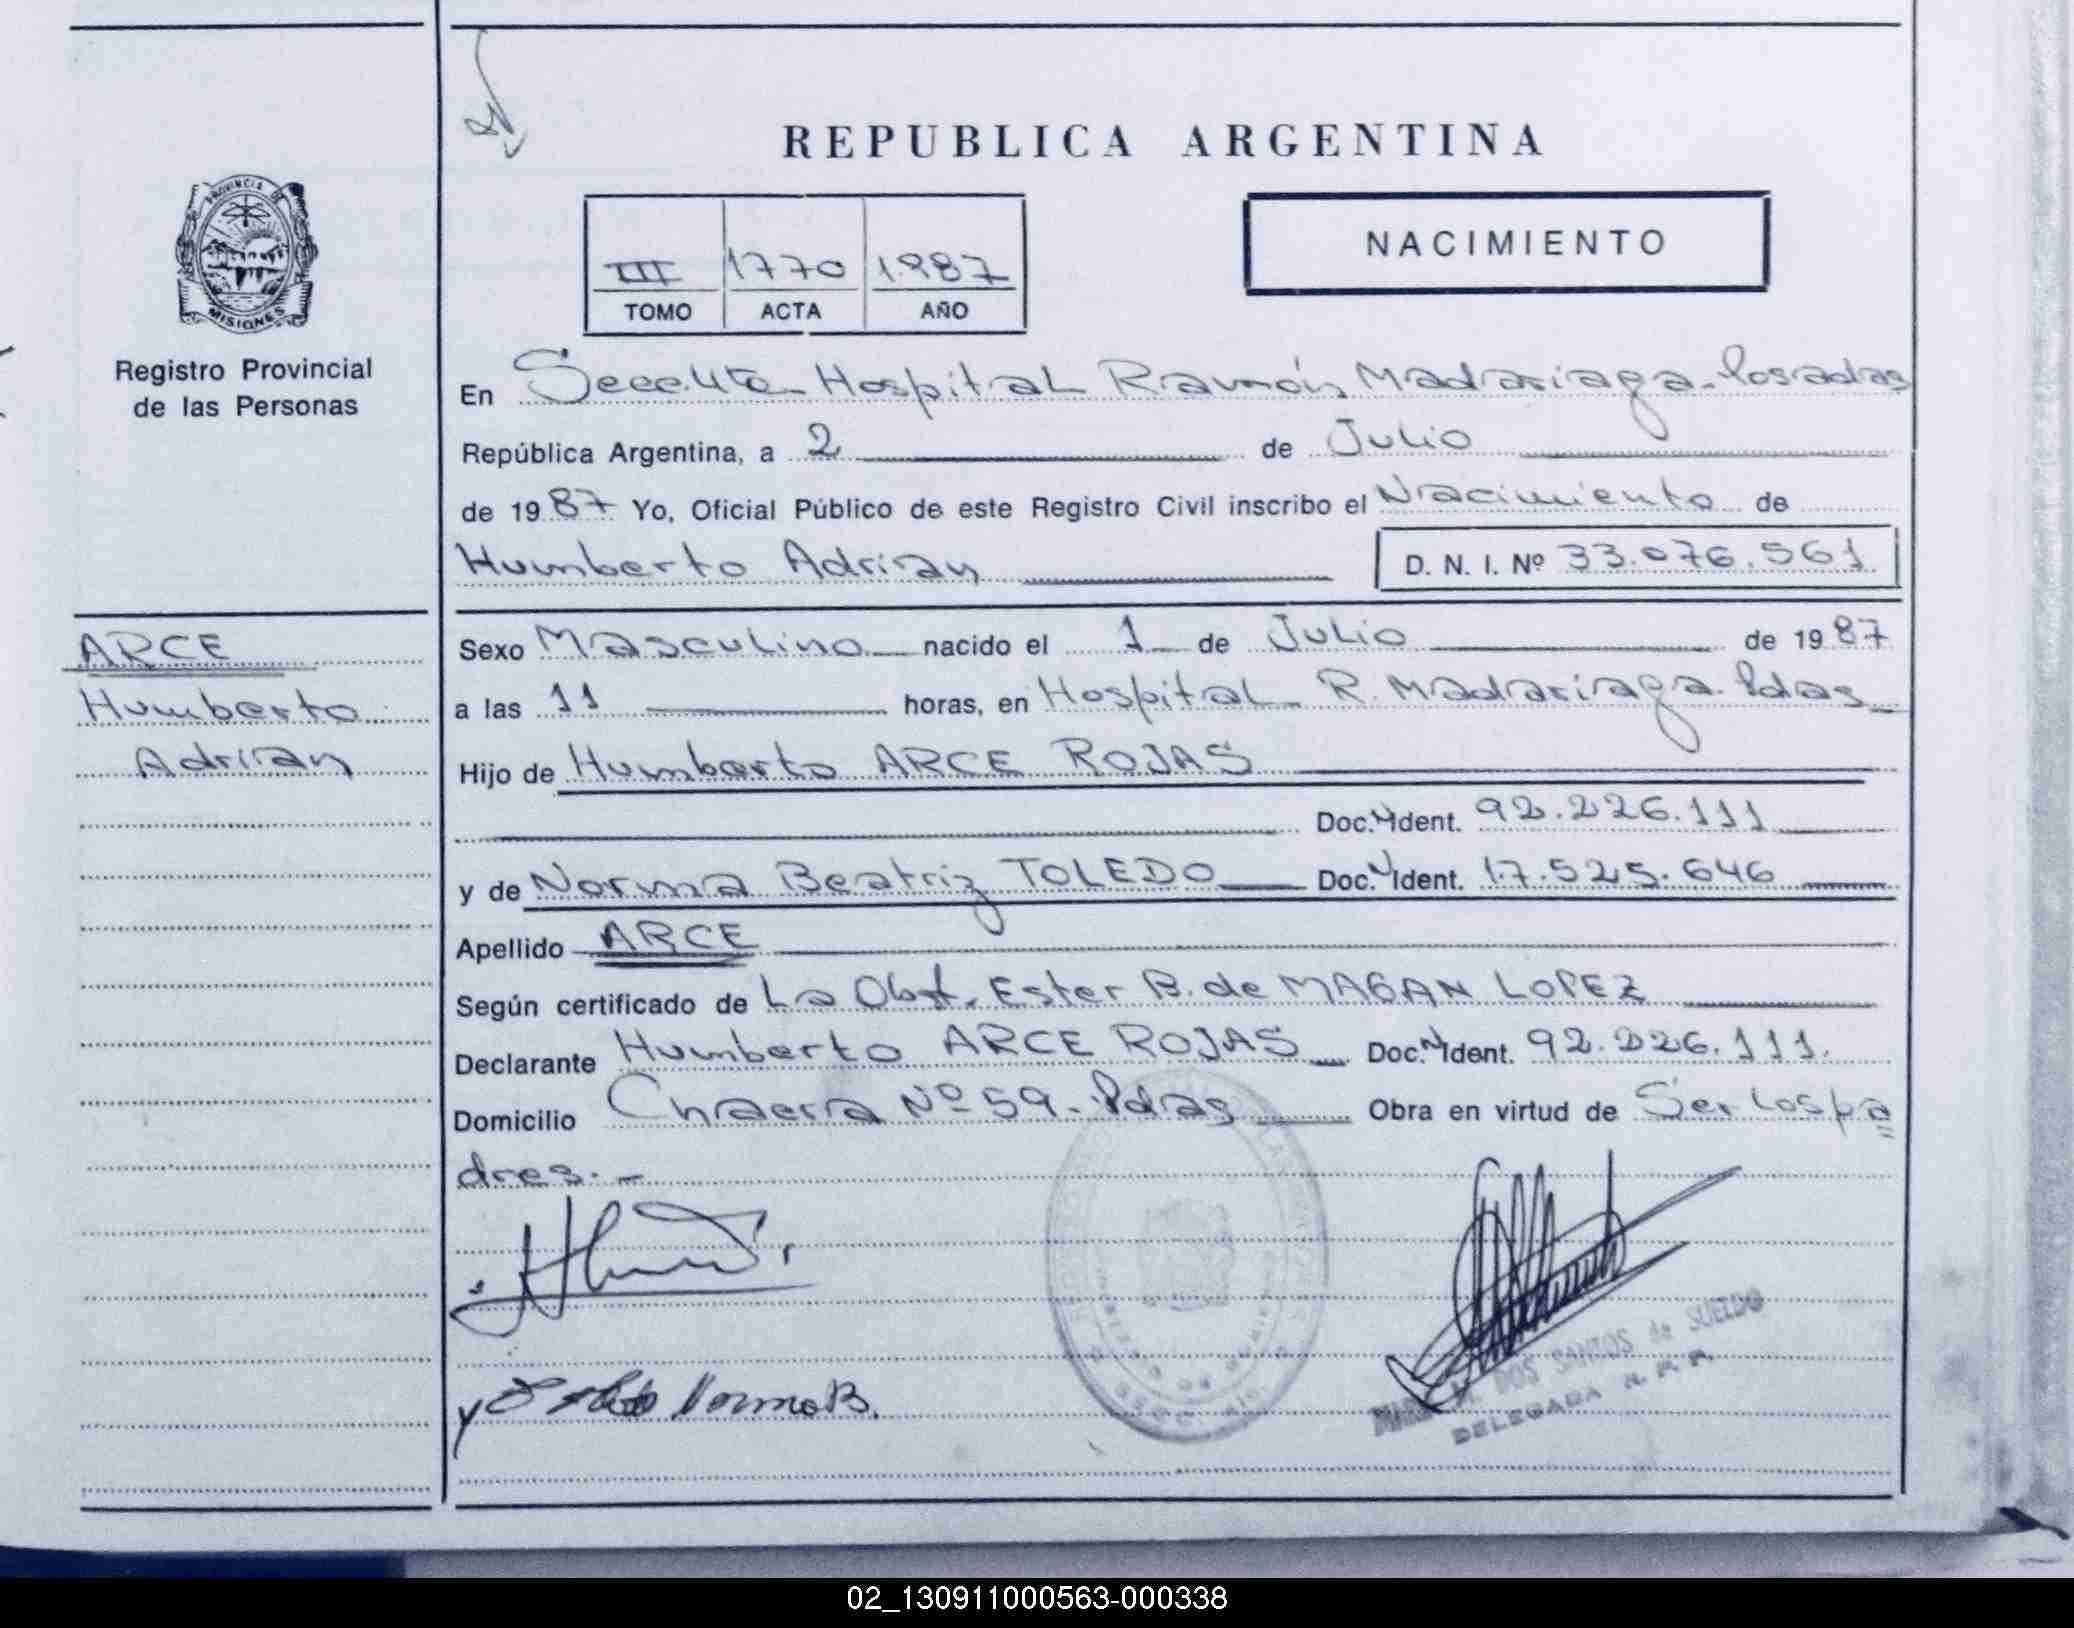 REPUBLICA ARGENTINA
PROVINCIA DE
MISIONES
Registro Provincial
de las Personas
III 1770 1987
TOMO ACTA AÑO
NACIMIENTO
En Secc. 4ta Hospital Ramón Madariaga - Posadas
República Argentina, a 2 de Julio
de 1987 Yo, Oficial Público de este Registro Civil inscribo el Nacimiento de
Humberto Adrian D. N. I. Nº 33.076.561
ARCE
Humberto
Adrian
Sexo Masculino nacido el 1 de Julio de 1987
a las 11 horas, en Hospital R. Madariaga. Pdas
Hijo de Humberto ARCE ROJAS
Doc. N Ident. 92.226.111
y de Norma Beatriz TOLEDO Doc. N Ident. 17.525.646
Apellido ARCE
Según certificado de La Obst. Ester B. de MAGAN LOPEZ
Declarante Humberto ARCE ROJAS Doc. N Ident. 92.226.111.
Domicilio Chacra Nº 59 - Pdas Obra en virtud de Ser los pa
dres. -
Norma B.
DOS SANTOS de SUELDO
DELEGADA R. P. P.
02_130911000563-000338